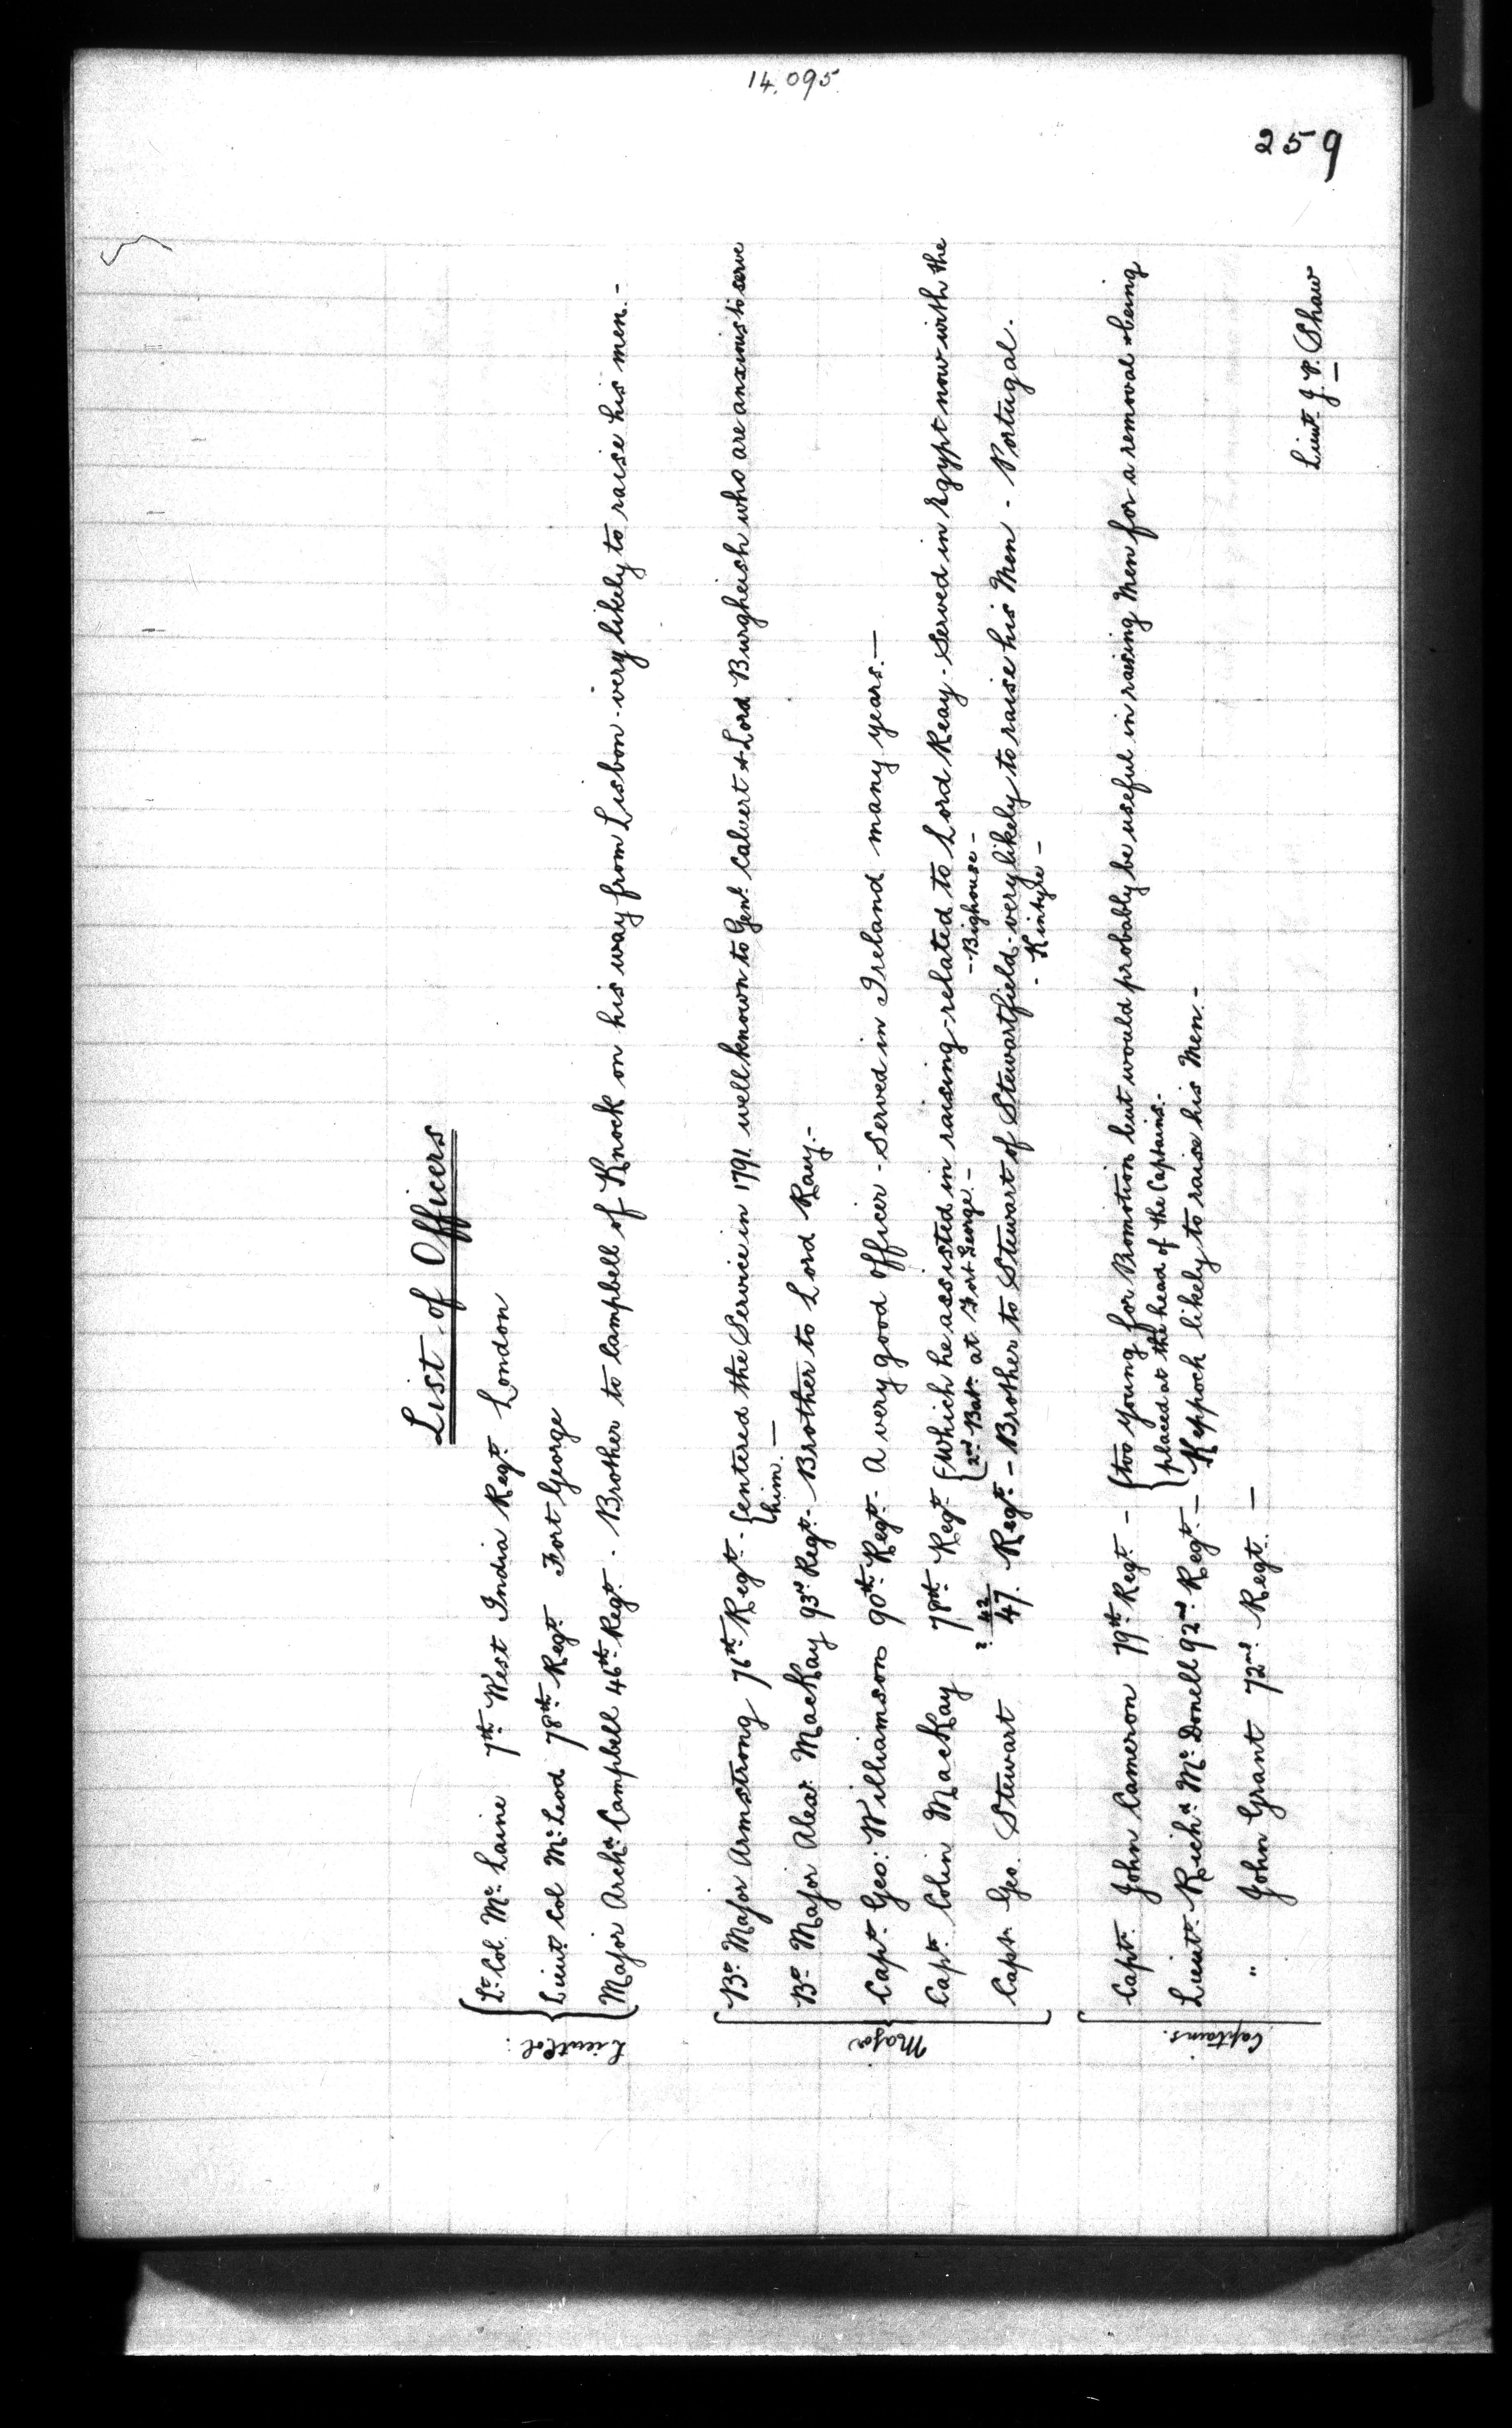 14.095.
259
List of Officers
Lt. Col. Mc. Laine 7th West India Regt. London
Lieut Col Mc. Leod 78th Regt Fort George
Major Archd. Campbell 46th Regt. - Brother to Campbell of Knock on his way from Lisbon - very likely to raise his men. -
Lieut Col:
Bt. Major Armstrong 76th Regt. - entered the Service in 1791 well known to Genl. Calvert & Lord Burgheish who are anxious to serve
him. -
Bt. Major Alexr. MacKay 93rd Regt. - Brother to Lord Raey. -
Capt. Geo: Williamson 90th Regt. - A very good Officer - Served in Ireland many years. -
Capt. Colin MacKay 78th Regt. Which he assisted in raising - related to Lord Reay - Served in Egypt now with the
2nd Batn. at Fort George. - - Bighouse -
Capt. Geo. Stewart ? 42/47. Regt. - Brother to Stewart of Stewartfield - very likely to raise his Men - Portugal.
- Kintyre -
Major
Capt. John Cameron 79th Regt - too young for Promotion but would probably be useful in raising Men for a removal & being
placed at the head of the Captains. -
Lieut. Richd. Mc. Donell 92nd. Regt. - Keppoch likely to raise his Men. -
" John Grant 72nd Regt. -
Captains.
Lieut. J. P. Shaw